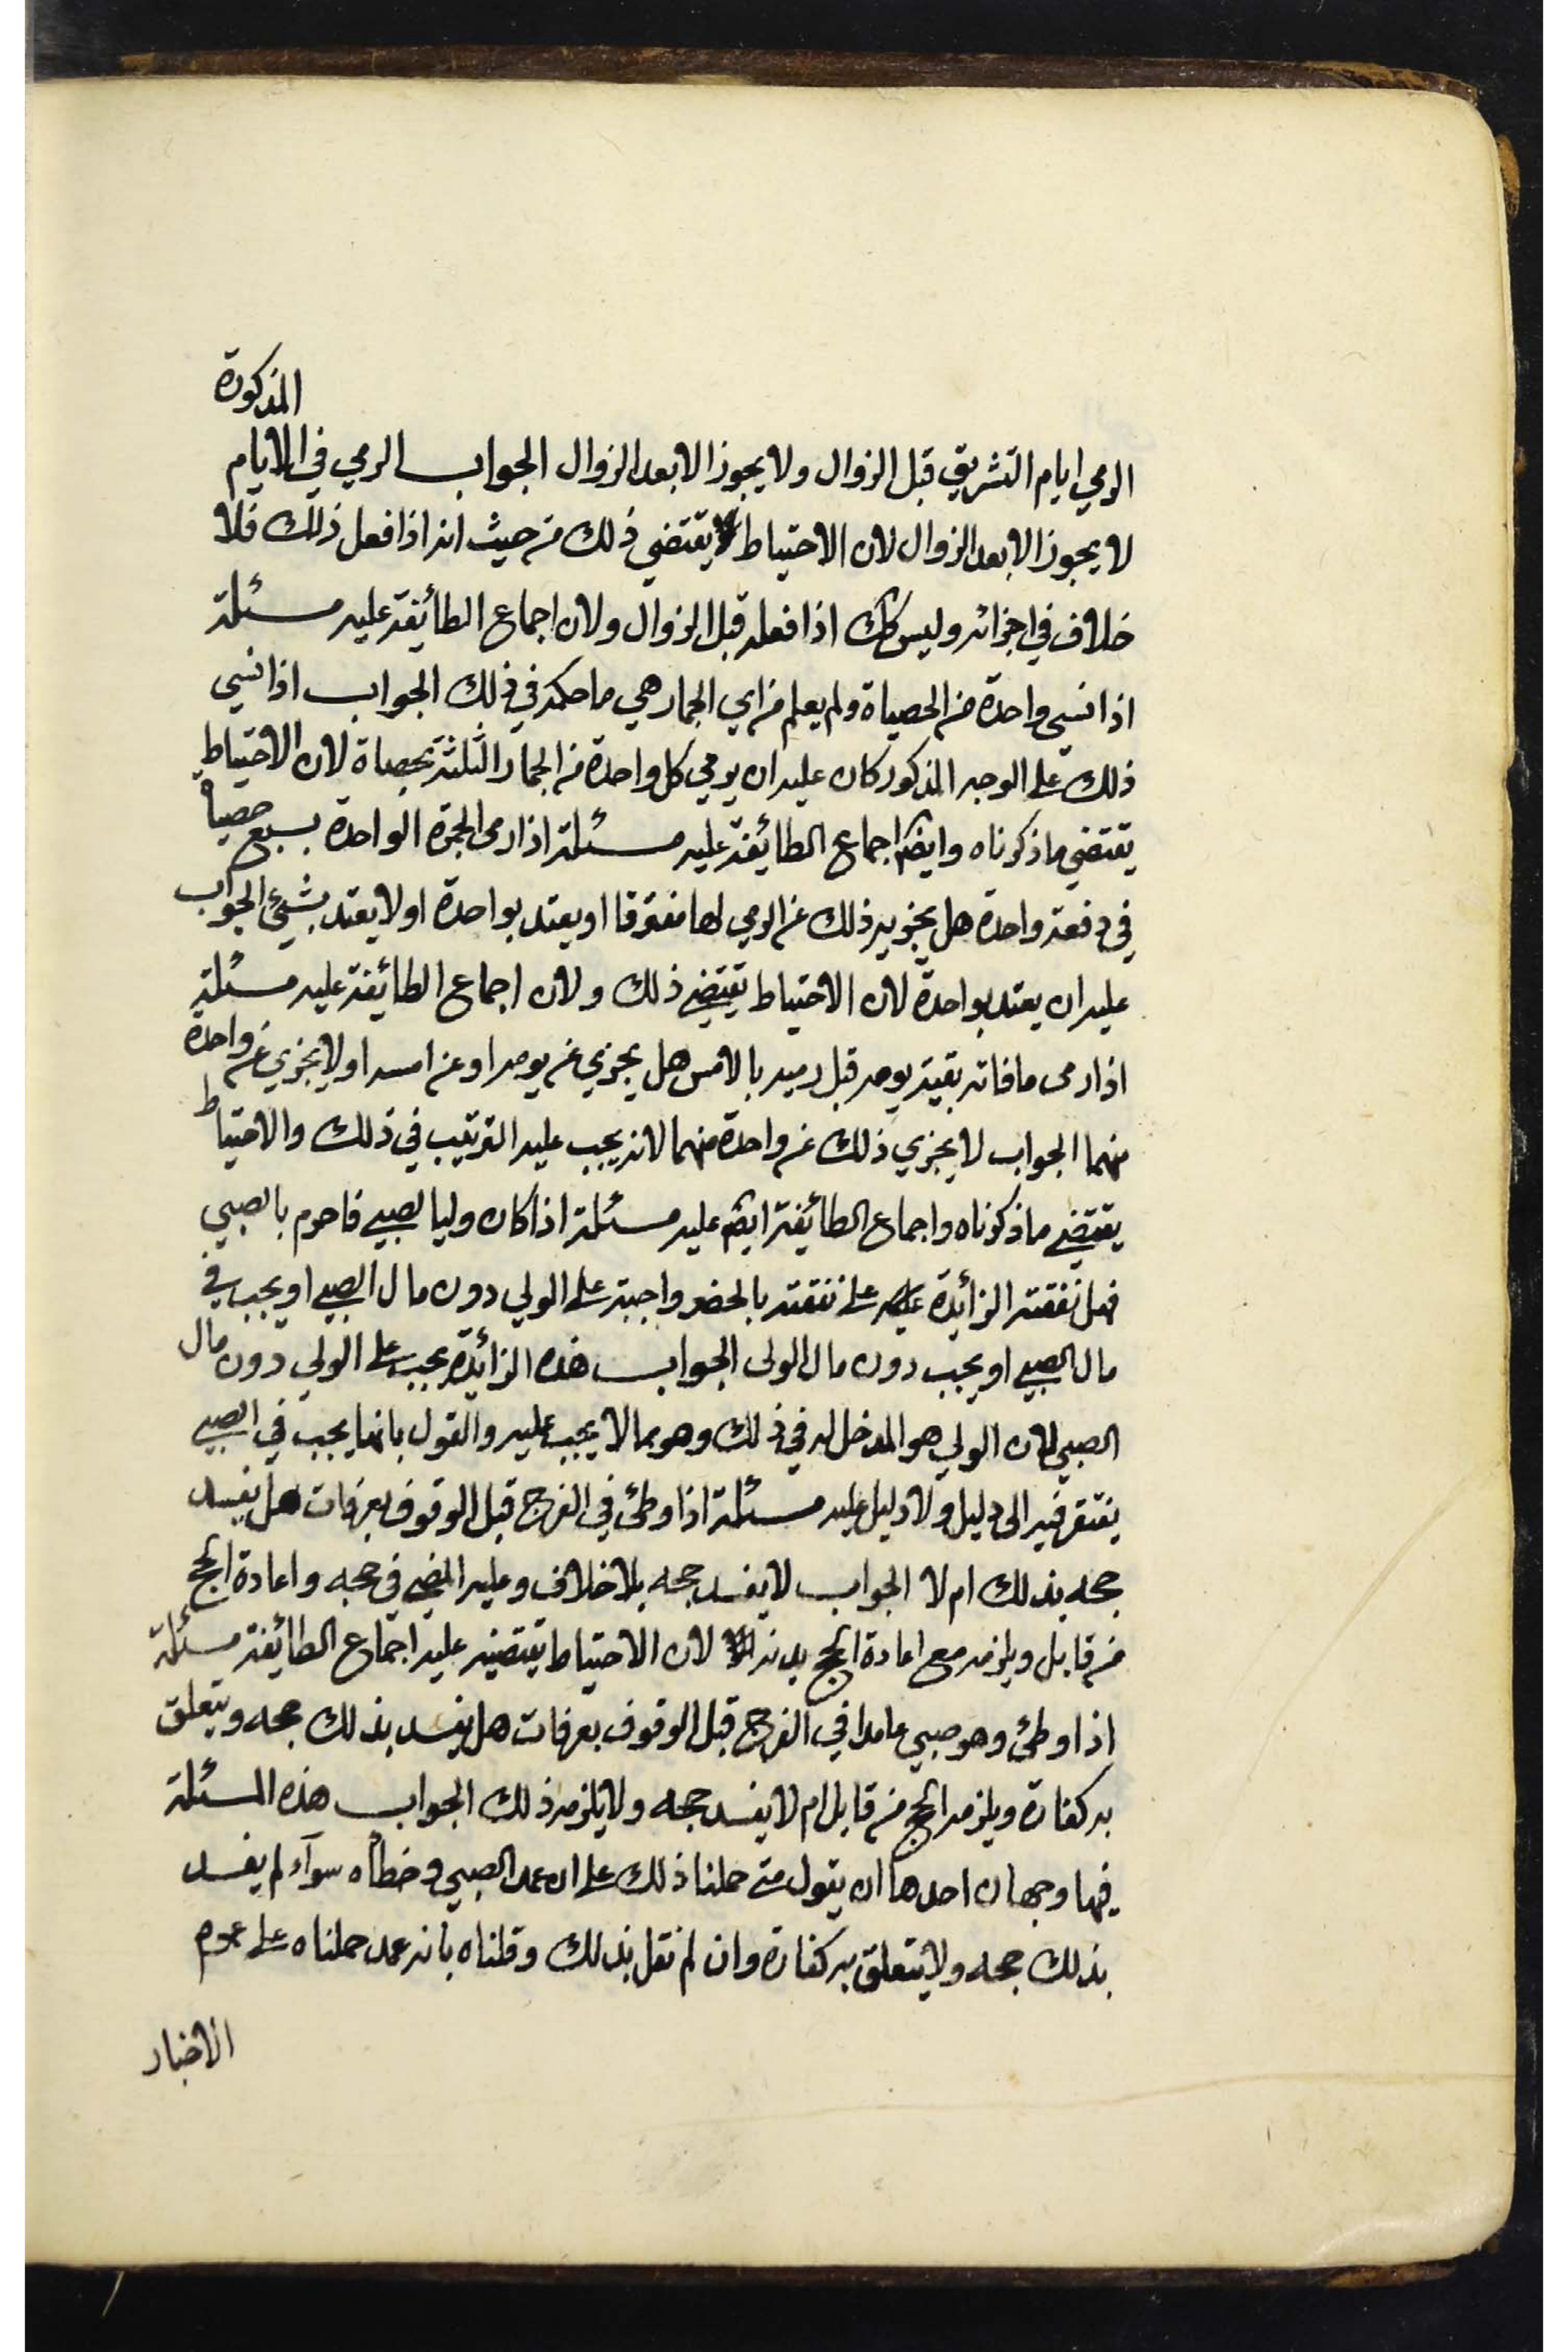 المذكورة
الرمي ايام التشريق قبل الزوال ولا يجوز الا بعد الزوال الجواب الرمي في الايام
لا يجوز الا بعد الزوال لان الاحتياط يقتضي ذلك من حيث انه اذا فعل ذلك فلا
خلاف في اجزائه وليس كك اذا فعله قبل الزوال ولان اجماع الطائيفة عليه مسئلة
اذا نسي واحدة من الحصياة ولم يعلم من اي الجمار هي ما حكمه في ذلك الجواب اذا نسي
ذلك على الوجه المذكور كان عليه ان يرمي كل واحدة من الجمار الثلثة بحصاة لان الاحتياط
يقتضي ماذكرناه وايضا اجماع الطائيفة عليه مسئلة اذا رمى الجمرة الواحدة بسبع حصيا
في دفعة واحدة هل يجزيه ذلك عن الرمي لها مفترقا او يعتد بواحدة او لا يعتد بشيئ الجواب
عليه ان يعتد بواحدة لان الاحتياط يقتضي ذلك ولان اجماع الطائيفة عليه مسئلة
اذا رمى ما فاته بقية يومه قبل رميه بالامس هل يجزي عن يومه او عن امسه او لا يجزي عن واحدة
منهما الجواب لا يجزي ذلك عن واحدة منهما لانه يجب عليه الترتيب في ذلك والاحتياط
يقتضي ماذكرناه واجماع الطائيفة ايضا عليه مسئلة اذا كان وليا لصبي فاحرم بالصبي
فهل نفقته الزائيدة على نفقته بالحضر واجبة على الولي دون مال الصبي او يجب في
مال الصبي او يجب دون مال الولى الجواب هذه الزائيدة يجب على الولي دون مال
الصبي لان الولي هو المدخل له في ذلك وهو مما لا يجب عليه والقول بانها يجب في الصبي
يفتقر فيه الى دليل ولا دليل عليه مسئلة اذا وطئ في الفرج قبل الوقوف بعرفات هل يفسد
حجه بذلك ام لا الجواب لا يفسد حجه بلا خلاف وعليه المضي في حجه واعادة الحج
من قابل ويلزمه مع اعادة الحج بدنة لان الاحتياط يقتضيه عليه اجماع الطائيفة مسئلة
اذا وطئ وهو صبي عامدا في الفرج قبل الوقوف بعرفات هل يفسد بذلك حجه ويتعلق
به كفارة ويلزمه الحج من قابل ام لا يفسد حجه ولا يلزمه ذلك الجواب هذه المسئلة
فيها وجهان احدها ان يقول متى حملنا ذلك على ان عمد الصبي وخطأه سوآء لم يفسد
بذلك حجه ولا يتعلق به كفارة وان لم نقل بذلك وقلناه بانه عمد حملناه على عموم
الاخبار